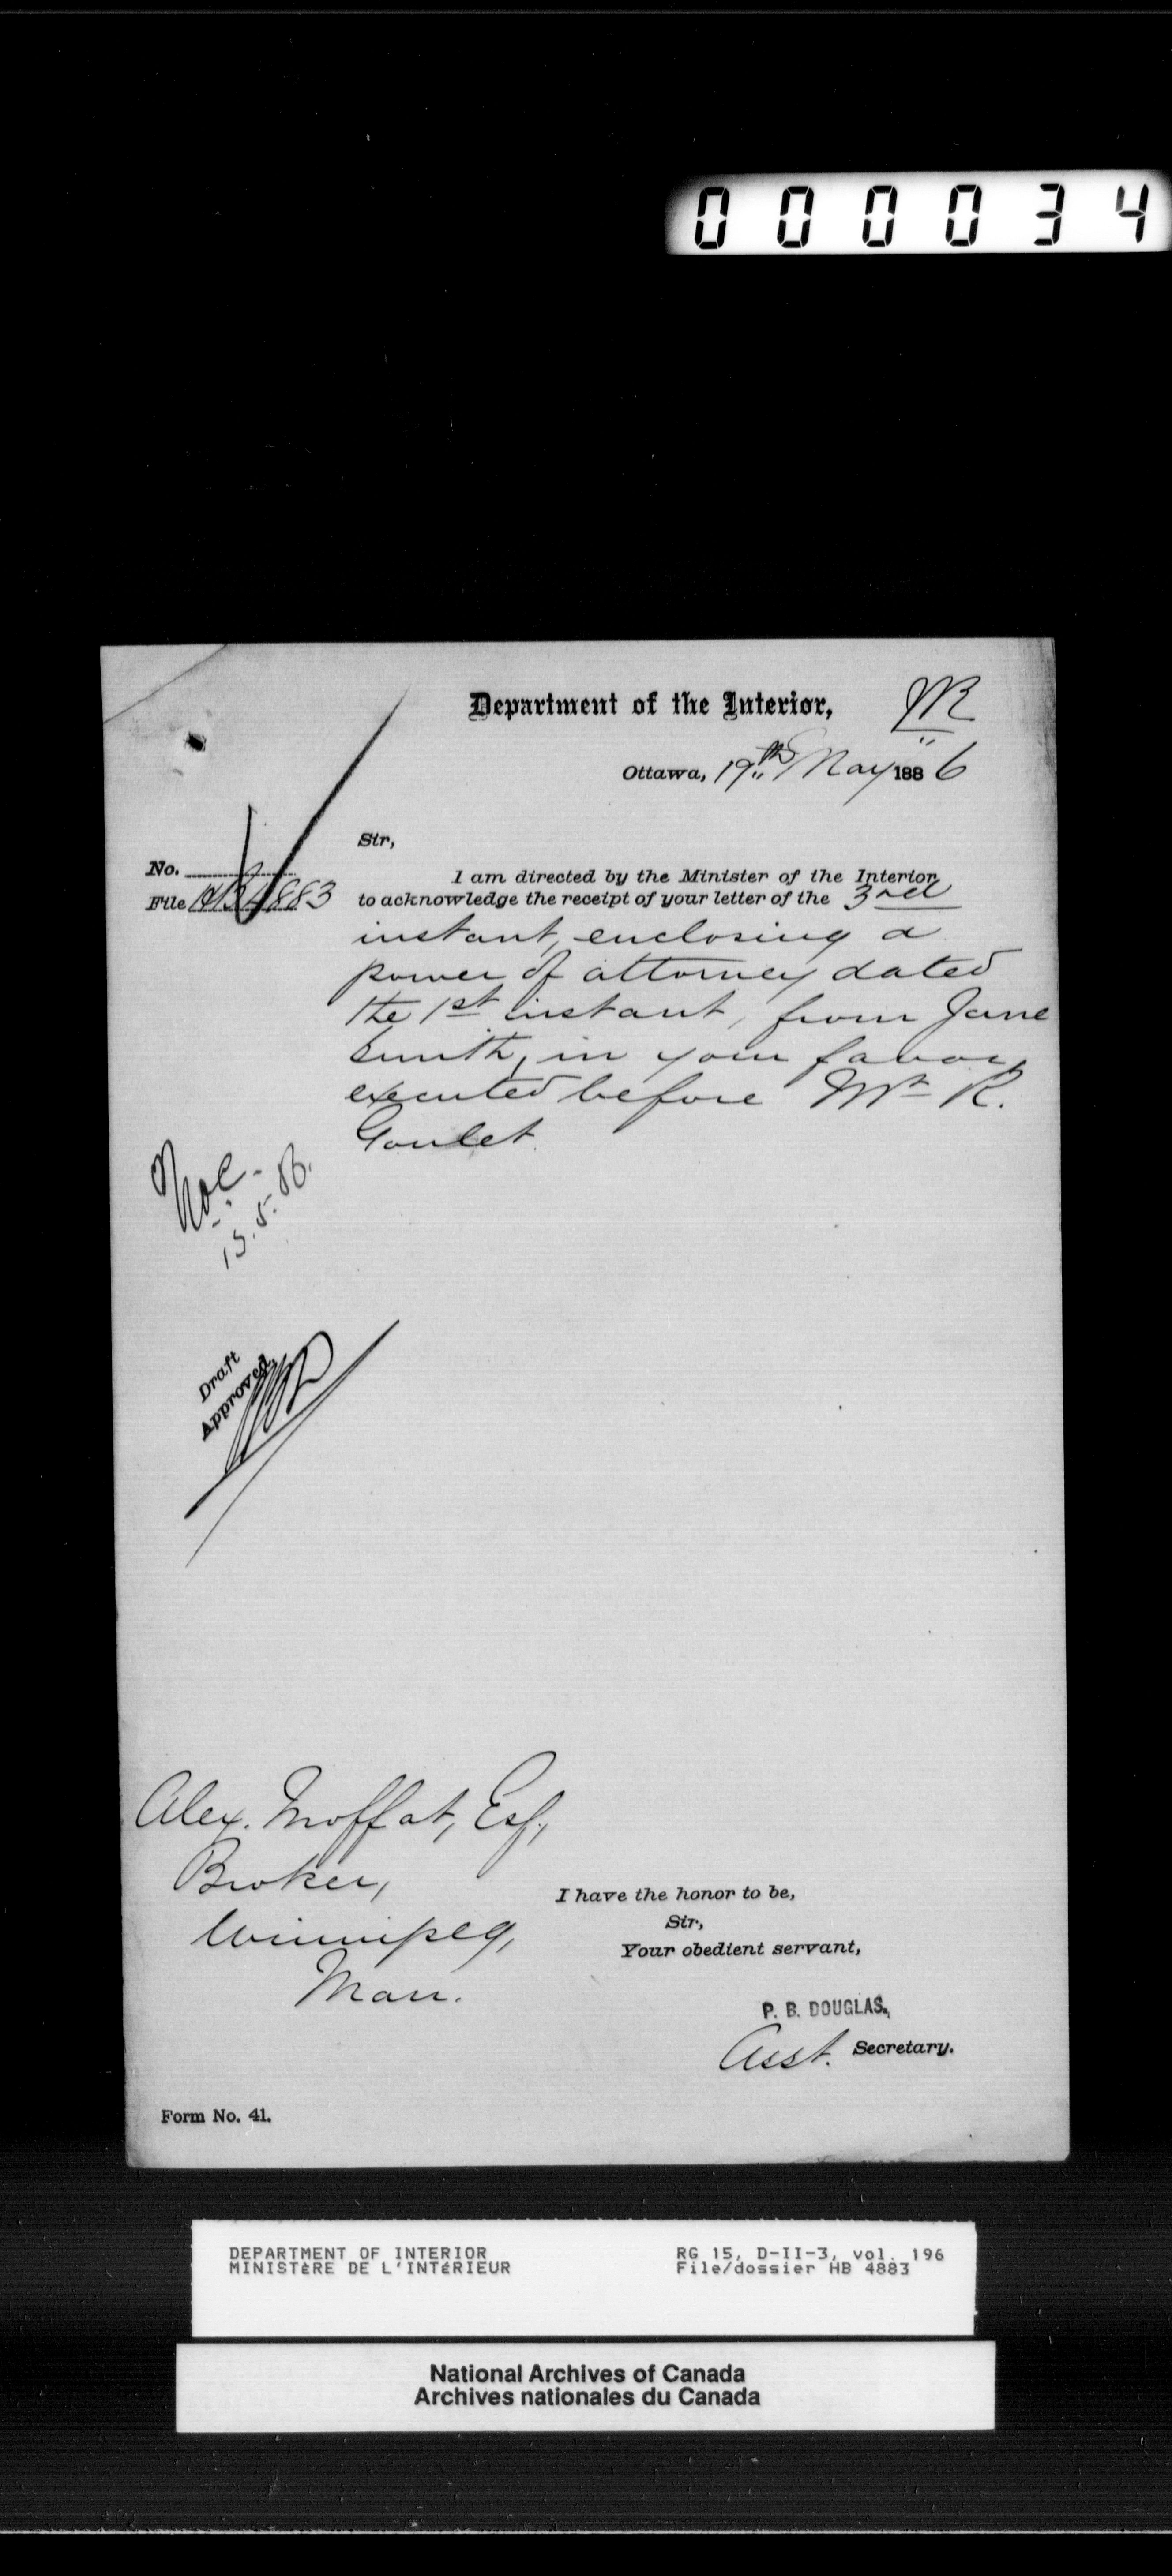 000034
Department of the Interior,
Ottawa, 19th May 1886
Sir,
No.
File HB 4883
I am directed by the Minister of the Interior
to acknowledge the receipt of your letter of the 3rd
instant, enclosing a
power of attorney dated
the 1st instant, from Jane
Smith, in your favor,
executed before Mr R.
Goulet.
Draft
Approved
Alex. Moffat, Esq.,
Broker,
Winnipeg,
Man.
I have the honor to be,
Sir,
Your obedient servant,
P. B. DOUGLAS,
Asst. Secretary.
Form No. 41.
DEPARTMENT OF INTERIOR
MINISTÈRE DE L'INTÉRIEUR
RG 15, D-II-3, vol. 196
File/dossier HB 4883
National Archives of Canada
Archives nationales du Canada